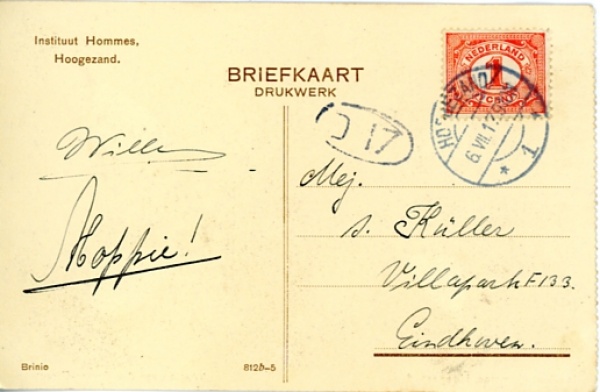 Instituut Hommes,
Hoogezand.
BRIEFKAART
DRUKWERK
NEDERLAND
1
CENT
6.VII.1
1
J 17
Willem
Moppie!
Mej.
s. Küller
Villapark F133.
Eindhoven.
Brinio
812b-5